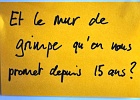 Et le mur de
grimpe qu'on nous
promet depuis 15 ans ?